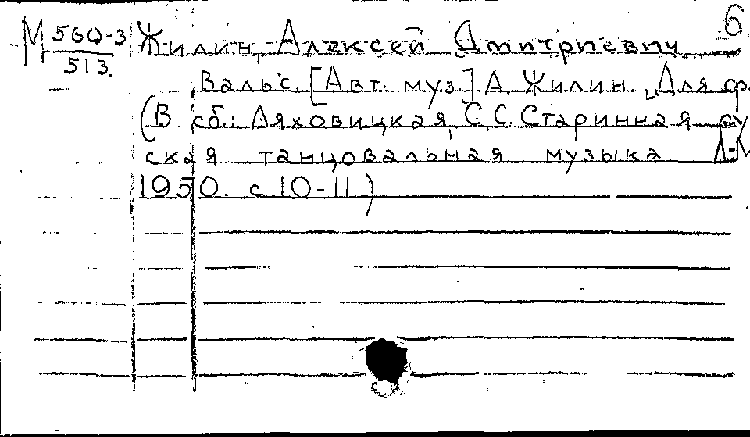 6
М 560-3 Жилин, Алексей Дмитриевич
513. Вальс. [Авт. муз.] А. Жилин. Для ф.
(В сб.: Ляховицкая, С.С. Старинная ру
ская танцовальная музыка. Л-М
1950. с 10-11)